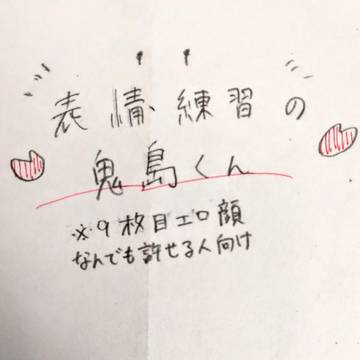 表情練習の
鬼島くん
※9枚目エロ顔
なんでも許せる人向け